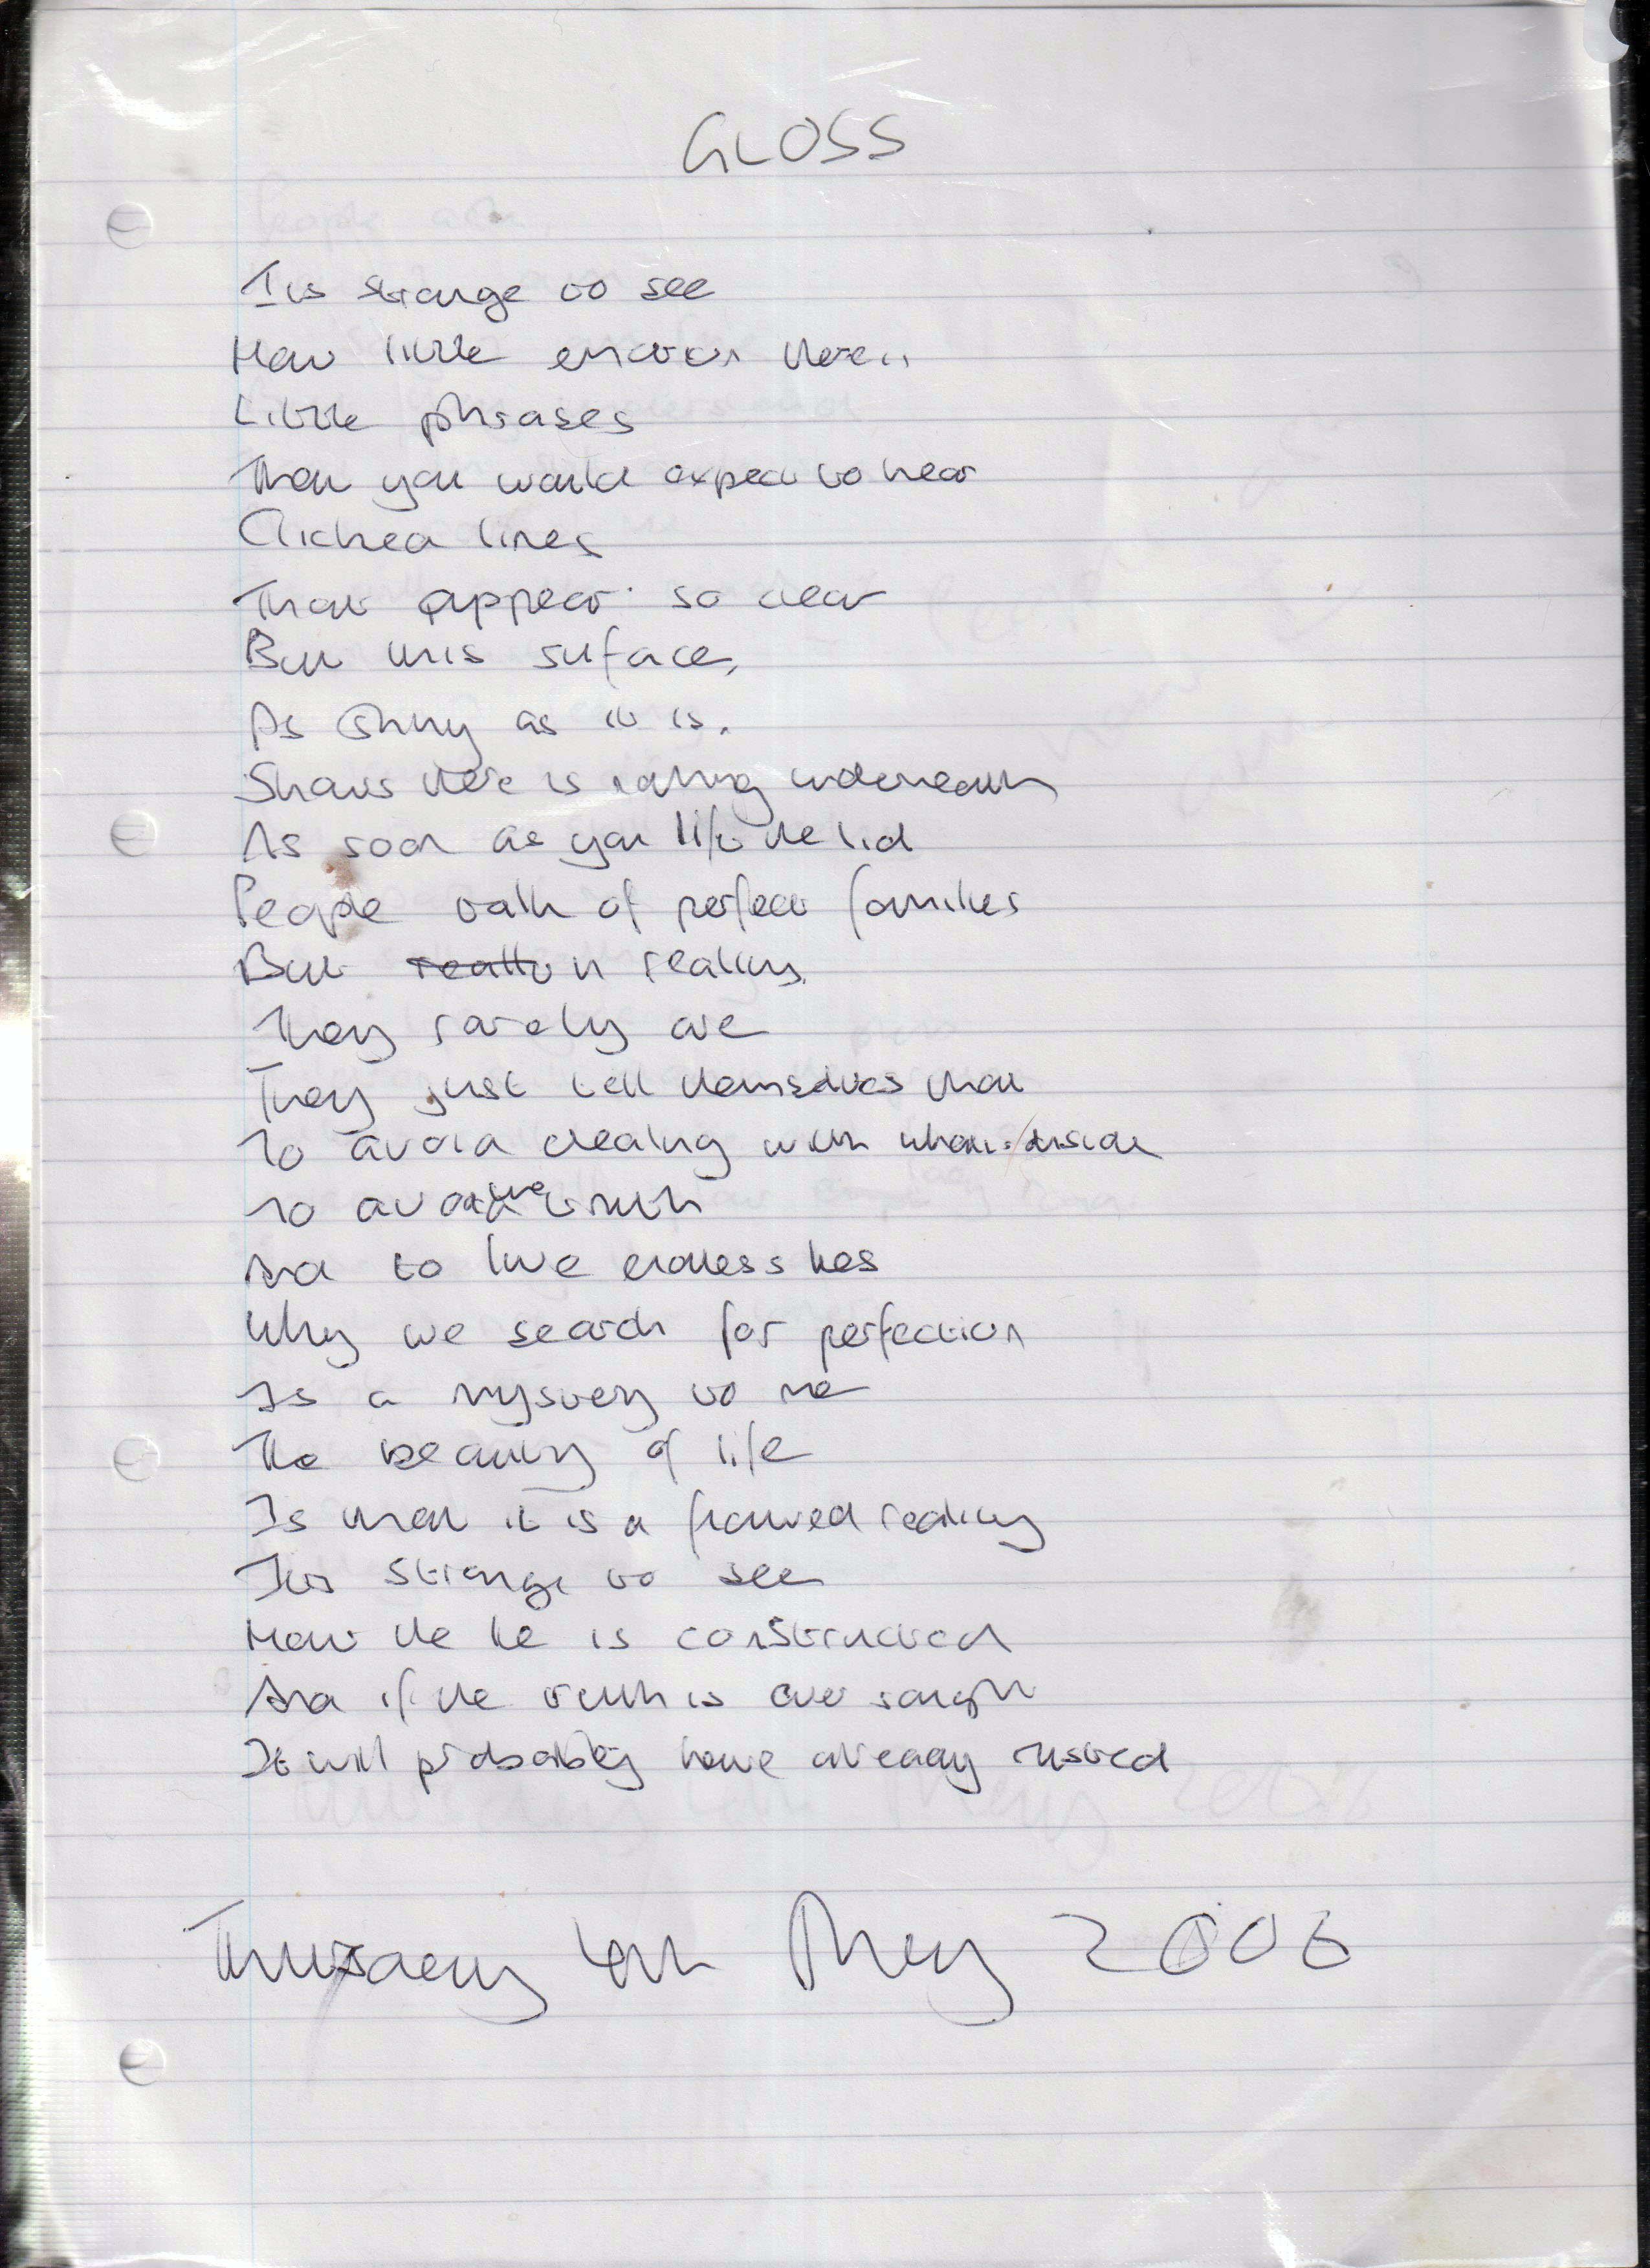 GLOSS
Its strange to see
How little emotion there is
Little phrases
That you would expect to hear
Cliched lines
That appear so clear
But this surface,
As shiny as it is,
Shows there is nothing underneath
As soon as you lift the lid
People talk of perfect families
But in reality
They rarely are
They just tell themselves that
To avoid dealing with whats inside
To avoid the truth
And to live endless lies
Why we search for perfection
Is a mystery to me
The beauty of life
Is that it is a flawed reality
Its strange to see
How the lie is constructed
And if the truth is ever sought
It will probably have already rusted
Thursday 4th May 2006